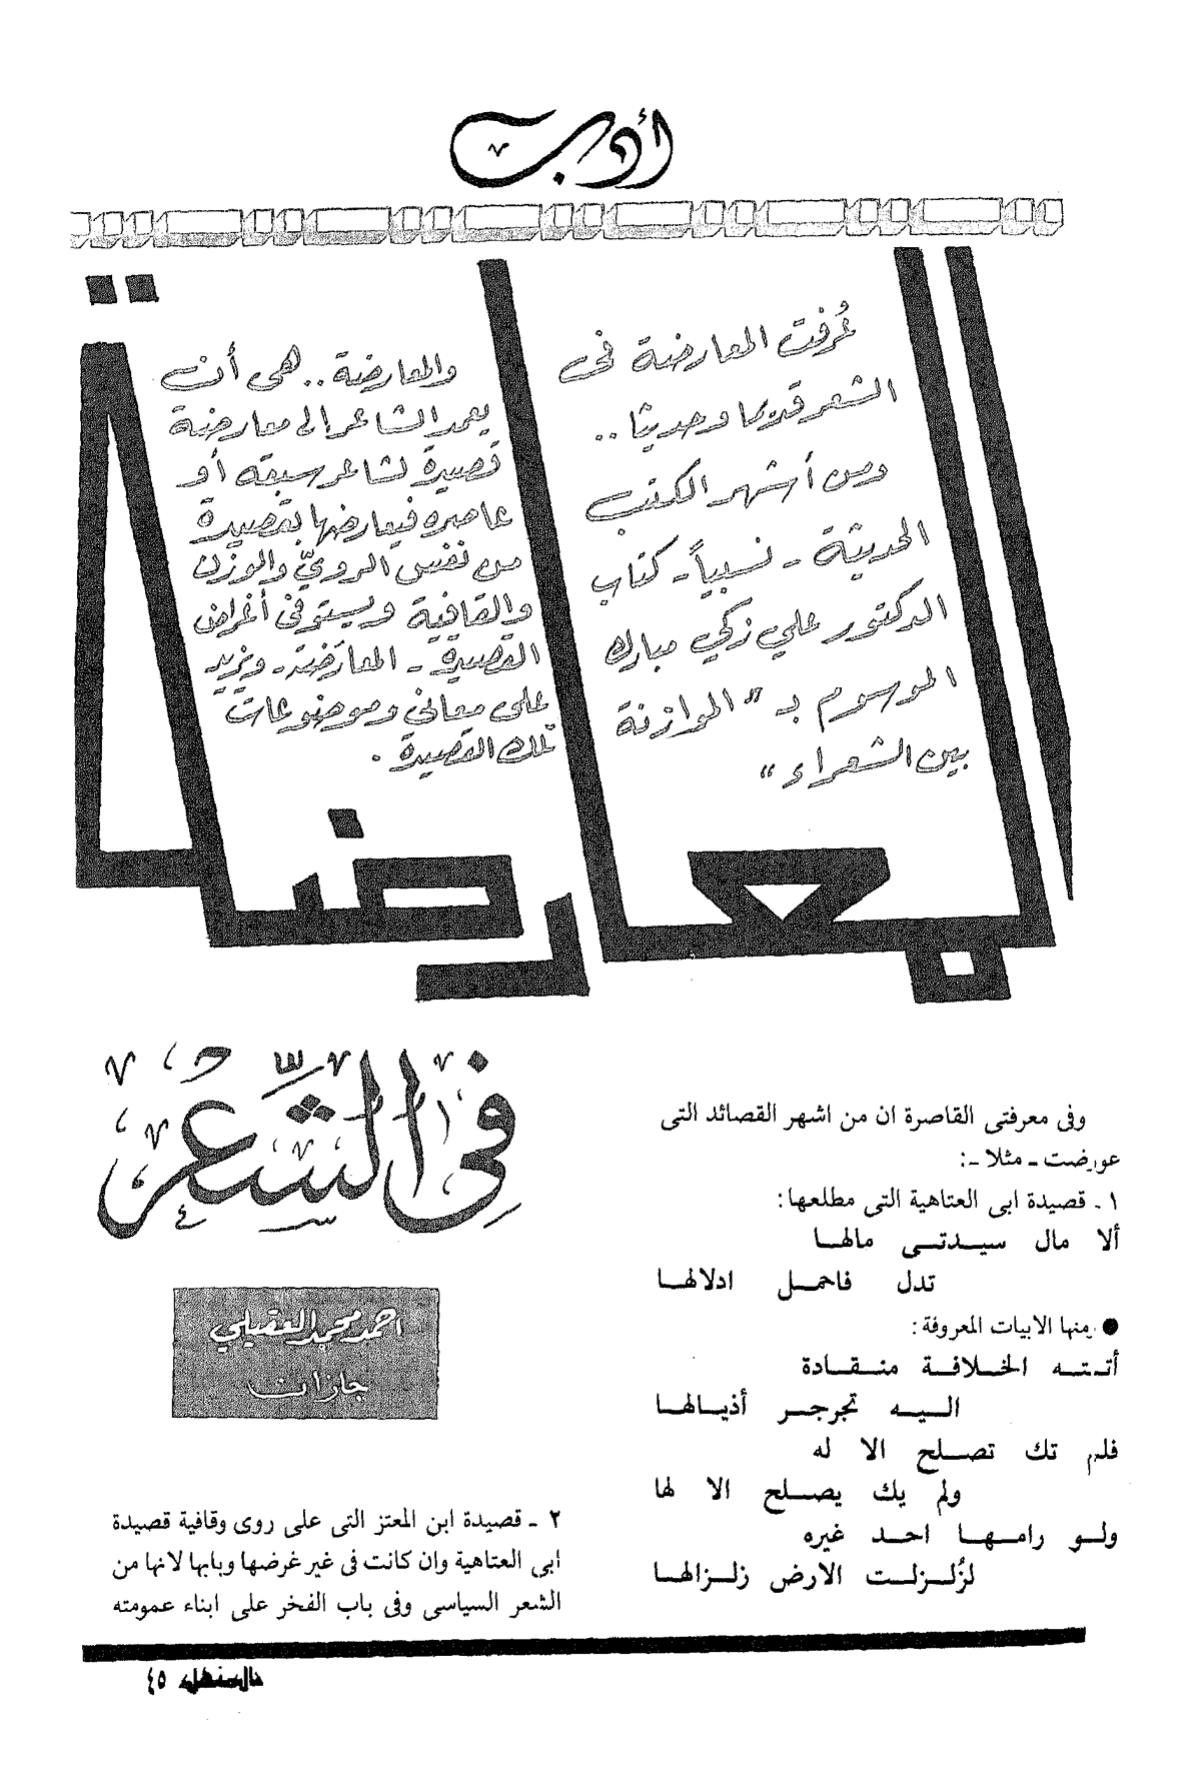 أدب
المعارضة
عُرفت المعارضة فى
الشعر قديما وحديثا ..
ومن أشهر الكتب
الحديثة - نسبياً - كتاب
الدكتور علي زكي مبارك
الموسوم بـ "الموازنة
بين الشعراء"
والمعارضة .. هى أن
يعمد الشاعر الى معارضة
قصيدة لشاعر سبقه أو
عاصره فيعارضها بقصيدة
من نفس الرويّ والوزن
والقافية ويستوفى أغراض
القصيدة - المعارَضة - ويزيد
على معانى وموضوعات
تلك القصيدة .
فى الشِّعْر
احمد محمد العقيلي
جازان
وفى معرفتى القاصرة ان من اشهر القصائد التى
عورضت ـ مثلا ـ:
١ ـ قصيدة ابى العتاهية التى مطلعها:
ألا مال سيدتى مالها
تدل فاحمل ادلالها
● ومنها الابيات المعروفة:
أتته الخلافة منقادة
اليه تجرجر أذيالها
فلم تك تصلح الا له
ولم يك يصلح الا لها
ولو رامها احد غيره
لزُلزلت الارض زلزالها
٢ ـ قصيدة ابن المعتز التى على روى وقافية قصيدة
ابى العتاهية وان كانت فى غير غرضها وبابها لانها من
الشعر السياسى وفى باب الفخر على ابناء عمومته
المنهل ٤٥